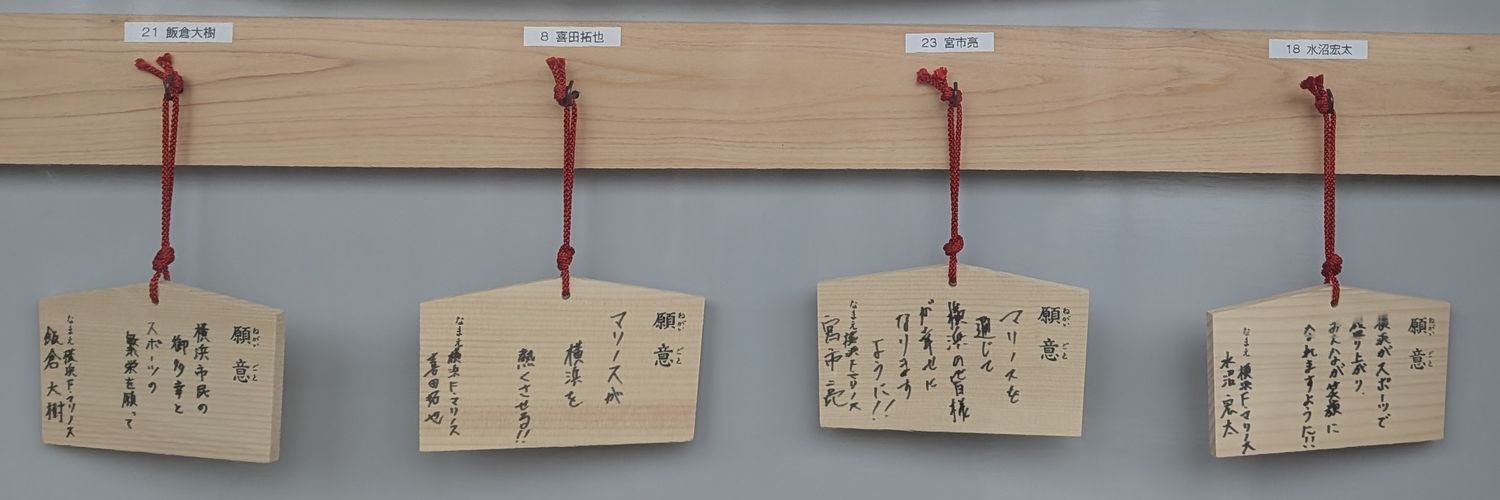 21 飯倉大樹
願意
ねがい ごと
横浜市民の
御多幸と
スポーツの
繁栄を願って
なまえ 横浜F・マリノス
飯倉大樹
8 喜田拓也
願意
ねがい ごと
マリノスが
横浜を
熱くさせる!!
なまえ 横浜F・マリノス
喜田拓也
23 宮市亮
願意
ねがい ごと
マリノスを
通じて
横浜の皆様
が幸せに
なります
ように!!
なまえ 横浜F・マリノス
宮市亮
18 水沼宏太
願意
ねがい ごと
横浜がスポーツで
盛り上がり、
みんなが笑顔に
なれますように!!
なまえ 横浜F・マリノス
水沼宏太